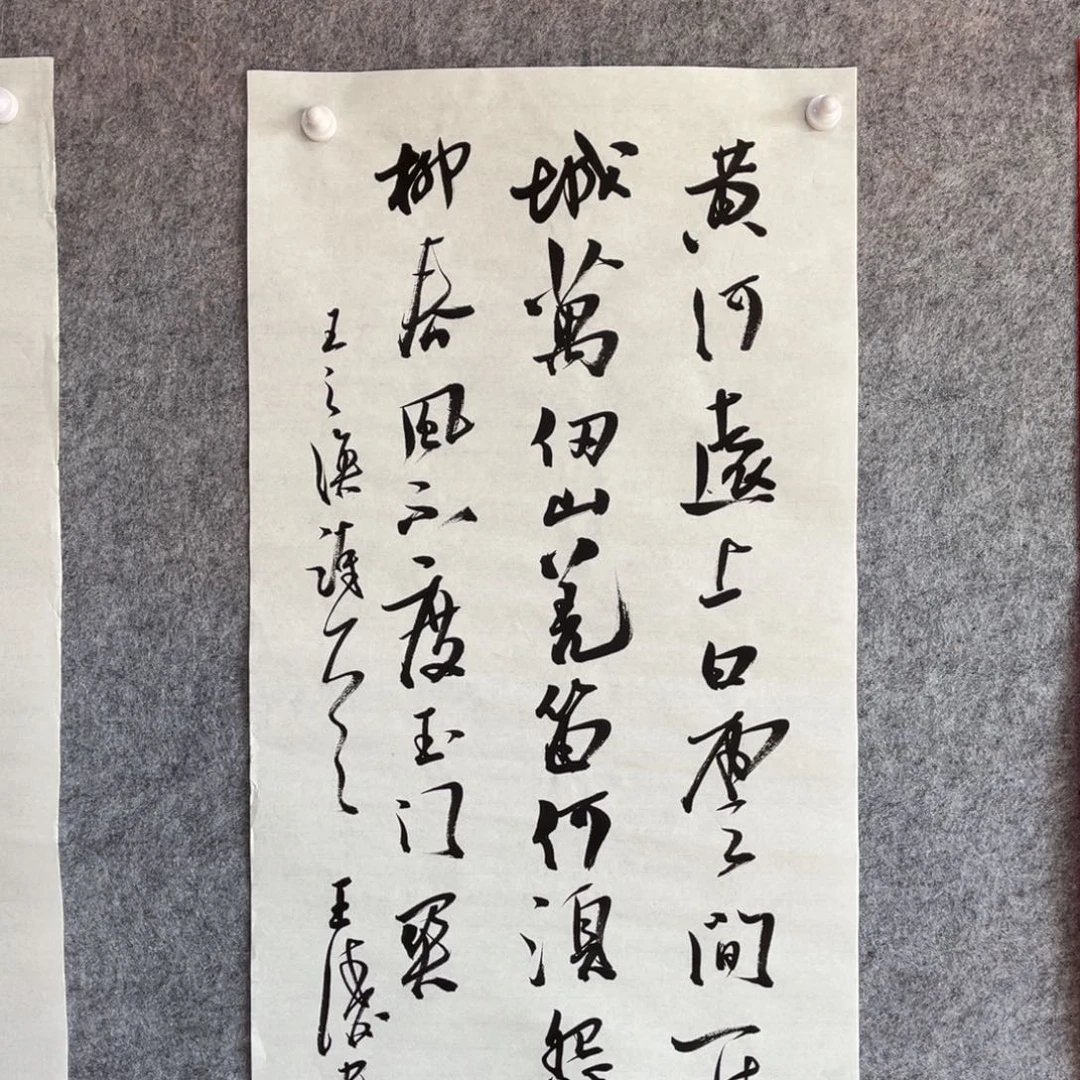 黄河遠上白雲間一
城萬仞山羌笛何須怨
柳春風不度玉门關
王之渙詩 王